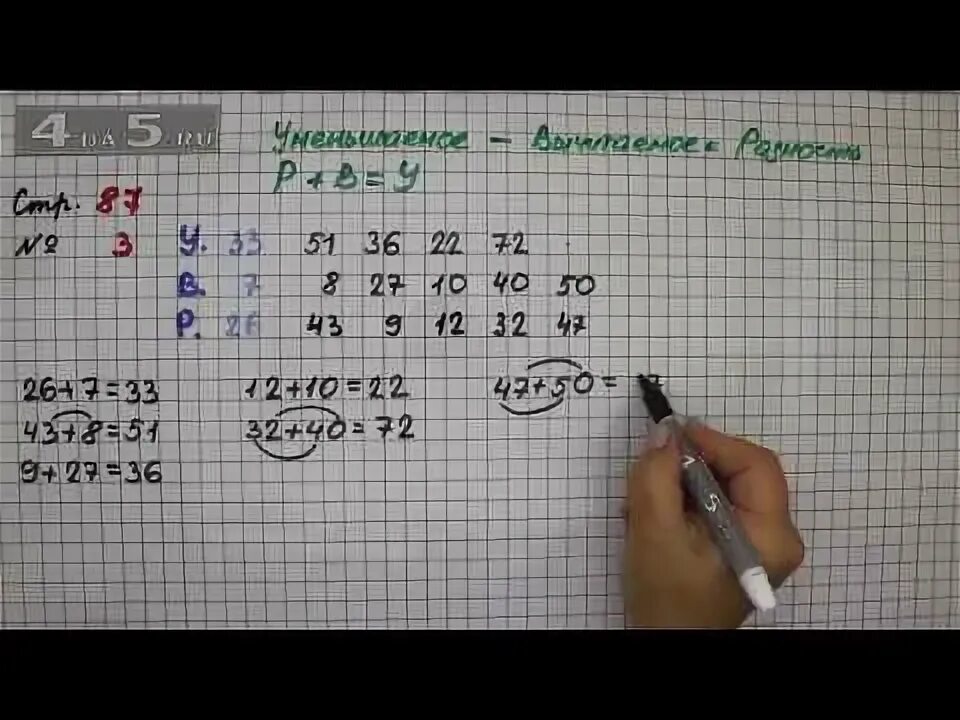 4 НА 5.RU
Уменьшаемое - Вычитаемое = Разность
Р + В = У
Стр. 87
№ 3
У. 33 51 36 22 72
В. 7 8 27 10 40 50
Р. 26 43 9 12 32 47
26+7=33 12+10=22 47+50= 7
43+8=51 32+40=72
9+27=36